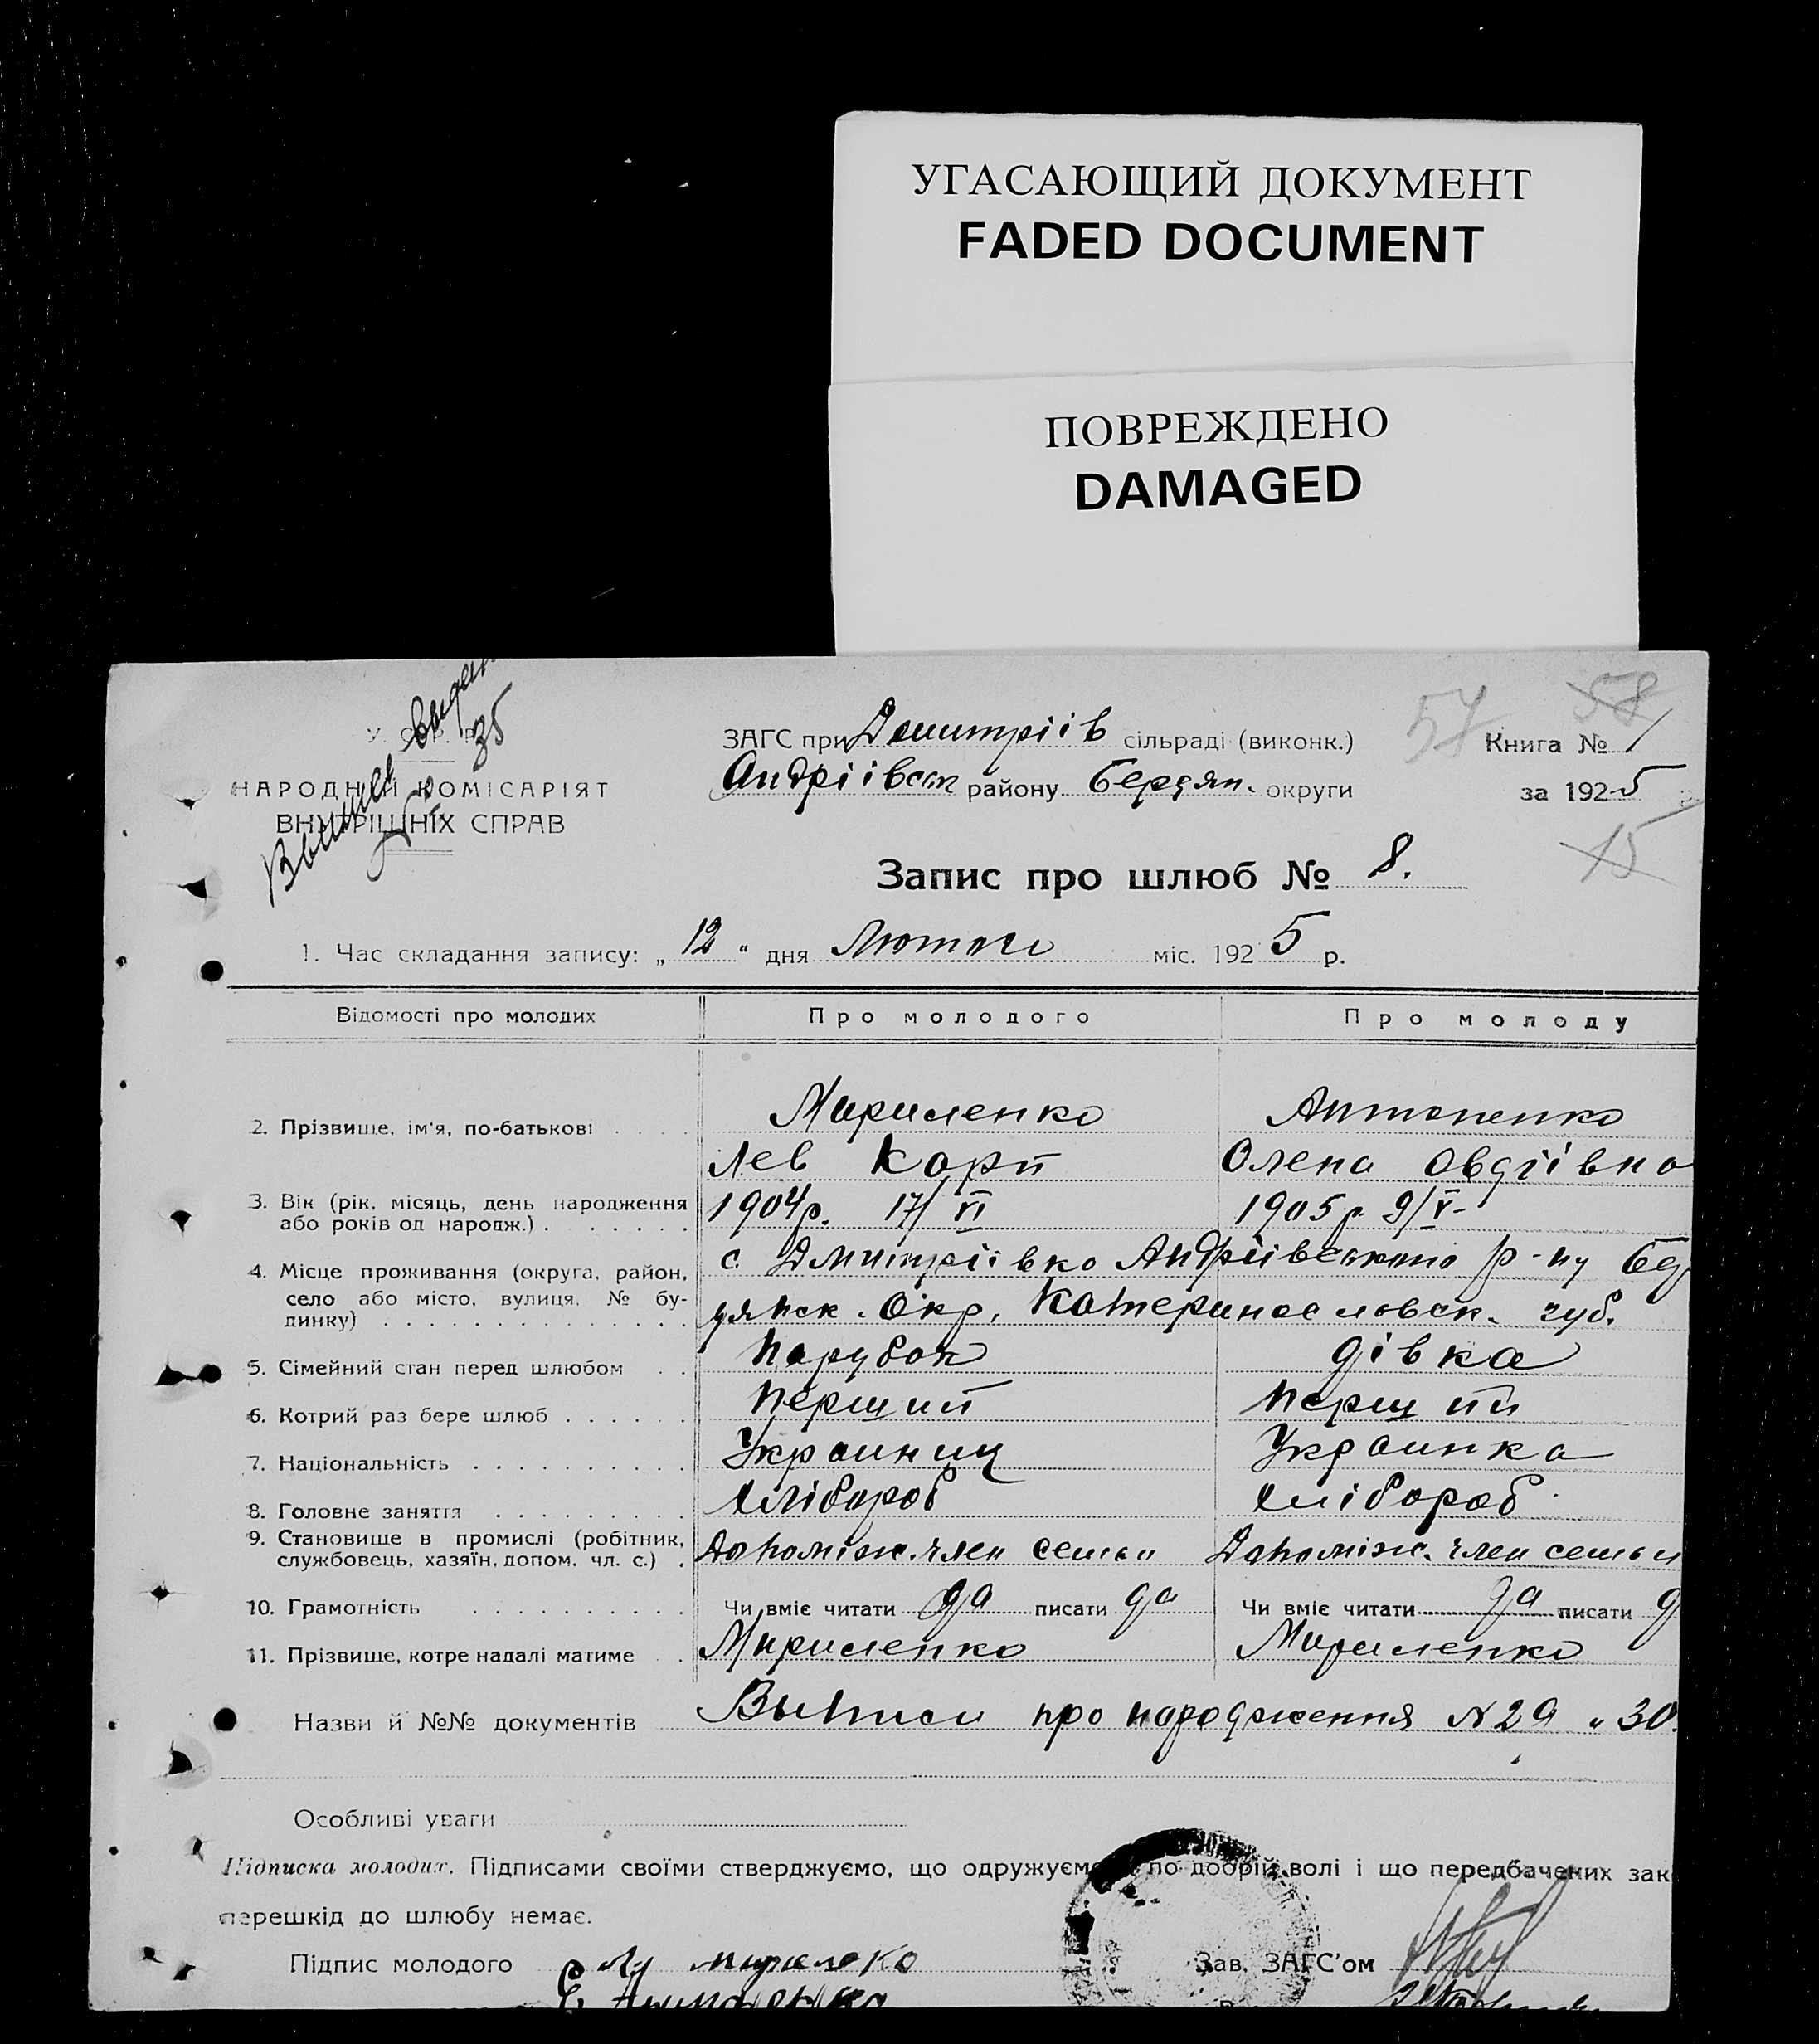 УГАСАЮЩИЙ ДОКУМЕНТ
FADED DOCUMENT
ПОВРЕЖДЕНО
DAMAGED
57 58
У. С. Р. Р.
35
НАРОДНИЙ КОМІСАРІЯТ
ВНУТРІШНІХ СПРАВ
ЗАГС при Дмитріів сільраді (виконк.) Книга № 1
Андріівськ району Бердян. округи за 1925
15
Запис про шлюб № 8.
1. Час складання запису: „12“ дня Лютого міс. 1925 р.
Відомості про молодих Про молодого Про молоду
2. Прізвище, ім'я, по-батькові Мириленко Антоненко
Лев Карп Олена Овдіівна
3. Вік (рік, місяць, день народження
або років од народж.) 1904р. 17/VI 1905р. 9/V-
4. Місце проживання (округа, район,
село або місто, вулиця, № бу-
динку)
с. Дмитріівко Андріівського р-ну Бер
дянск. Окр. Катеринославск. губ.
5. Сімейний стан перед шлюбом Парубок дівка
6. Котрий раз бере шлюб Перший Перший
7. Національність Украинец Украинка
8. Головне заняття Хлібороб Хлібороб
9. Становище в промислі (робітник,
службовець, хазяїн, допом. чл. с.) Допоміж. член семьи Допоміж. член семьи
10. Грамотність Чи вміє читати да писати да Чи вміє читати да писати д
11. Прізвище, котре надалі матиме Мириленко Мириленко
Назви й №№ документів Выписи про народження N 29 и 30.
Особливі уваги
Підписка молодих. Підписами своїми стверджуємо, що одружуємо по добрій волі і що передбачених зак
перешкід до шлюбу немає.
Підпис молодого Зав. ЗАГС'ом